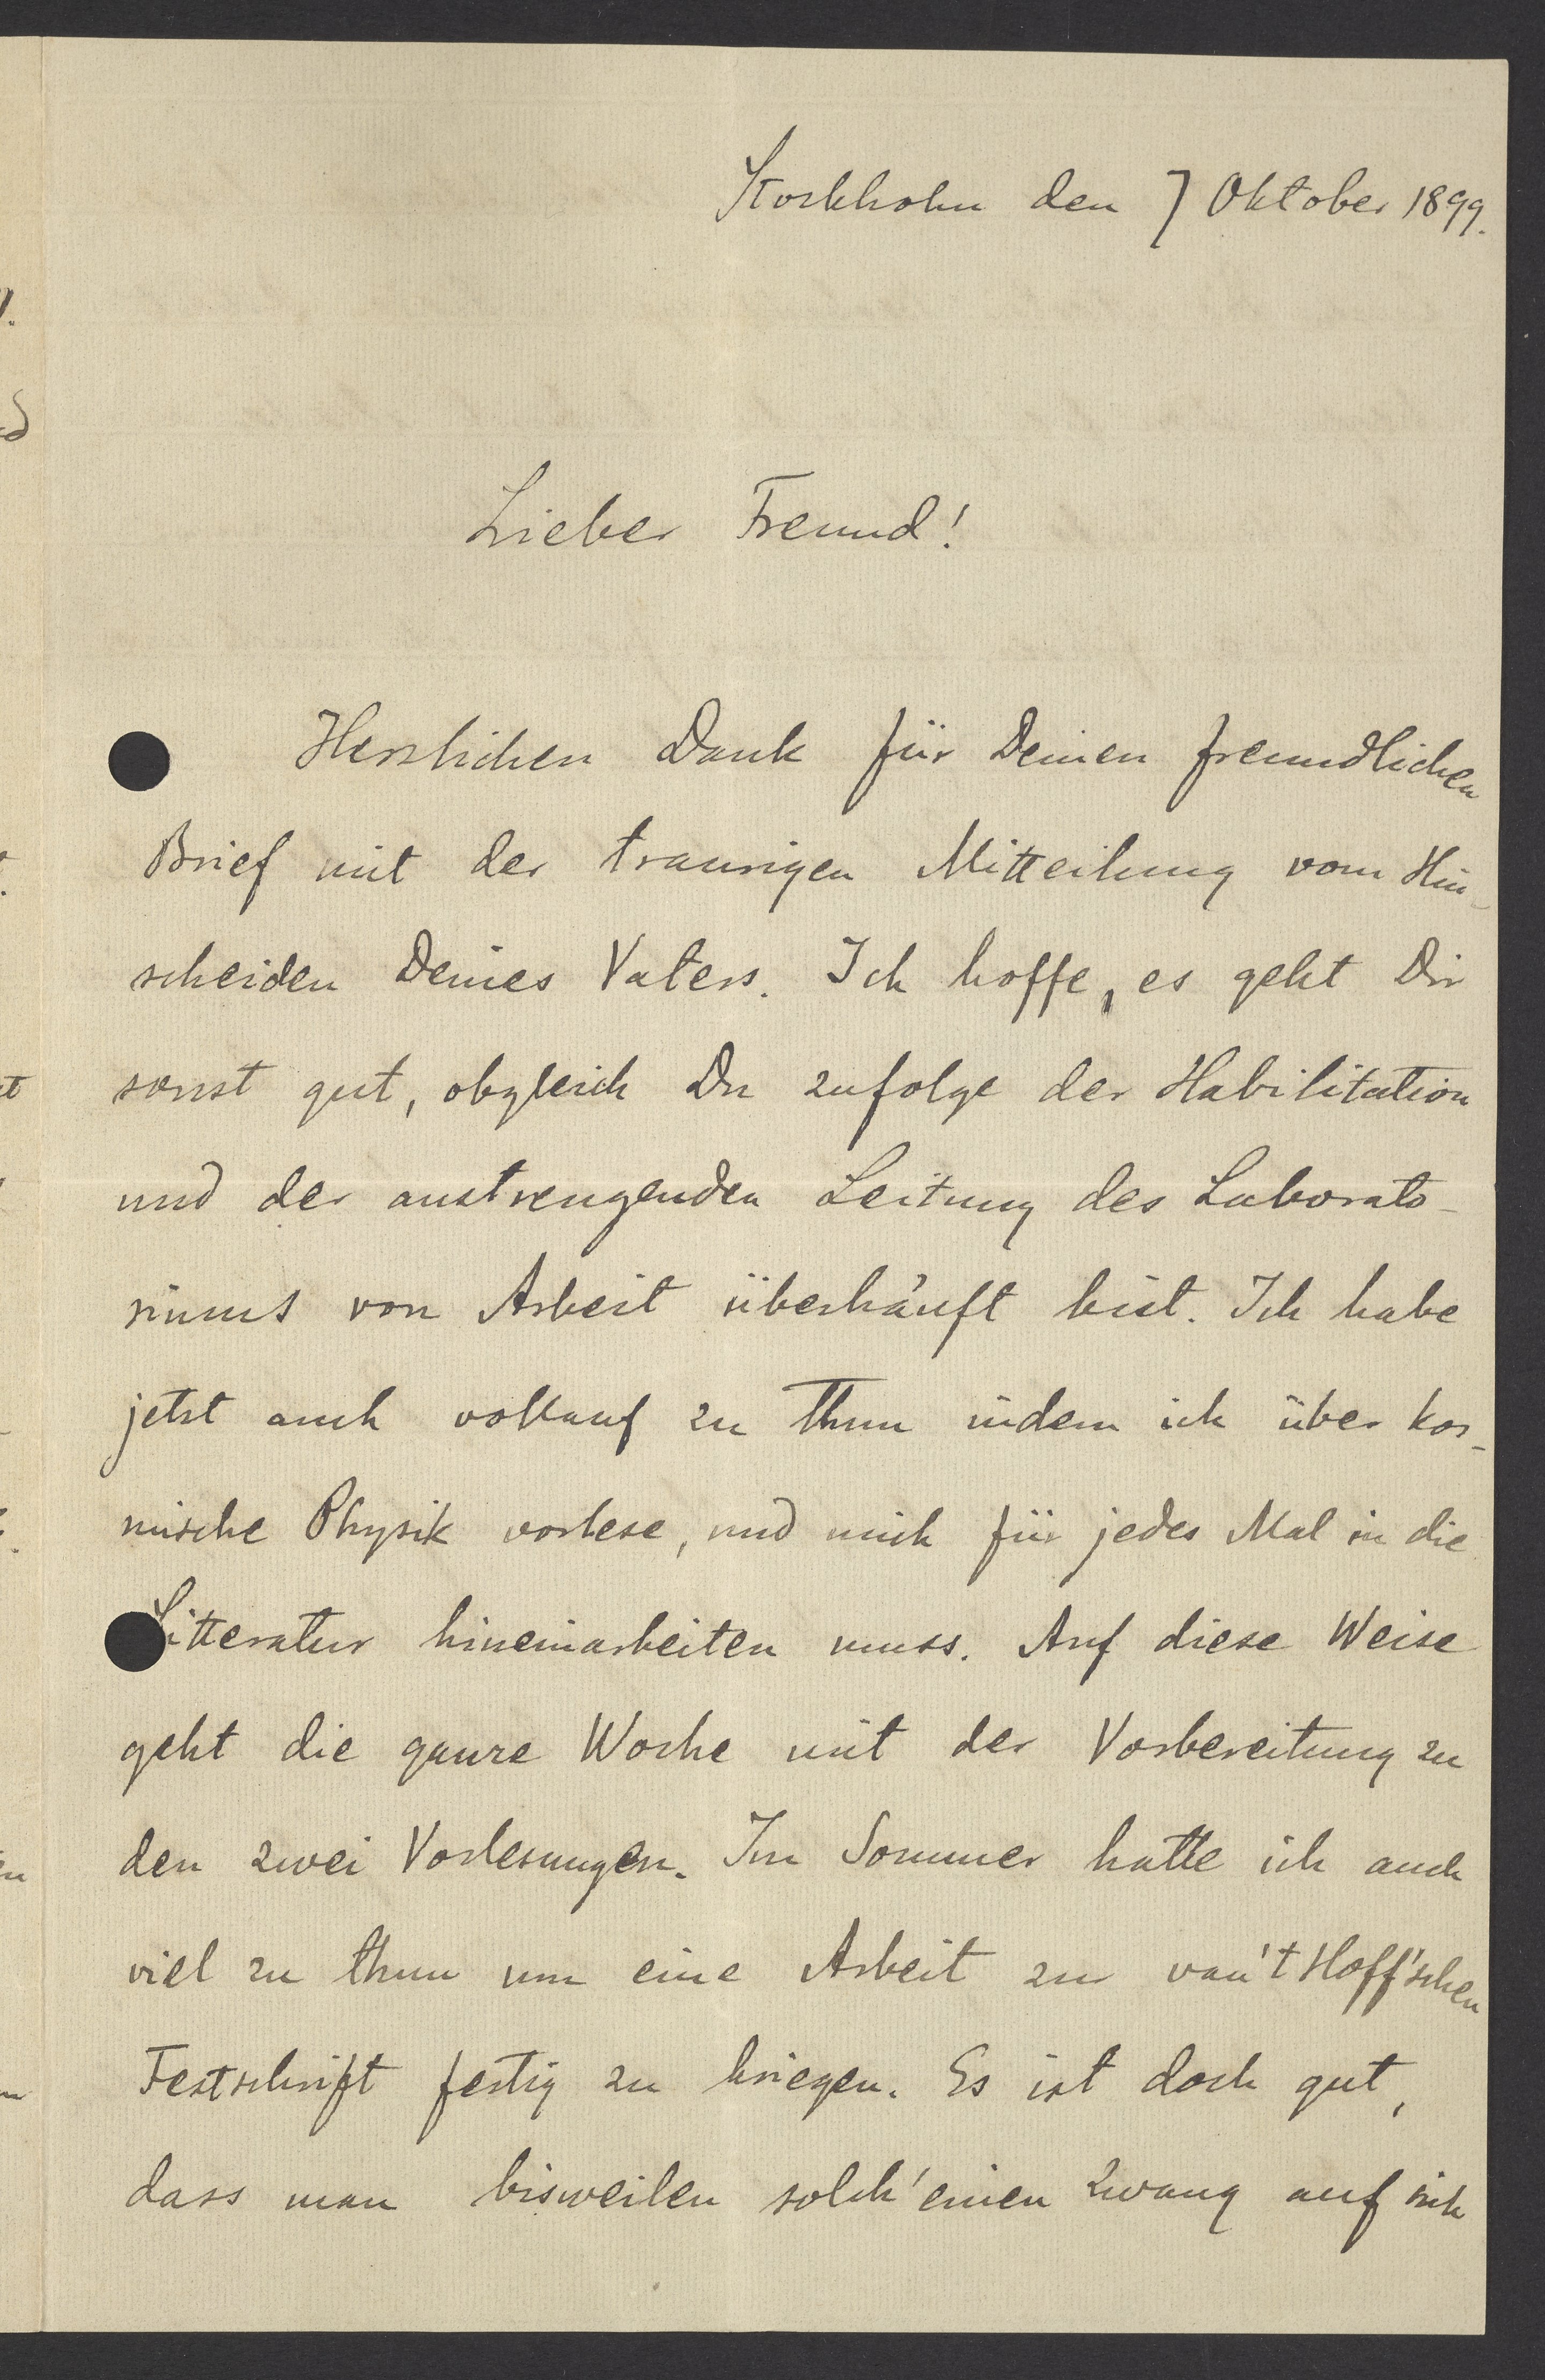 Stockholm den 7 Oktober 1899.
Lieber Freund!
Herzlichen Dank für Deinen freundlichen
Brief mit der traurigen Mitteilung vom Hin-
scheiden Deines Vaters. Ich hoffe, es geht Dir
sonst gut, obgleich Du zufolge der Habilitation
und der anstrengenden Leitung des Laborato-
riums von Arbeit überhäuft bist. Ich habe
jetzt auch vollauf zu thun indem ich über kos-
mische Physik vorlese, und mich für jedes Mal in die
Litteratur hineinarbeiten muss. Auf diese Weise
geht die ganze Woche mit der Vorbereitung zu
den zwei Vorlesungen. Im Sommer hatte ich auch
viel zu thun um eine Arbeit zur van't Hoff'schen
Festschrift fertig zu kriegen. Es ist doch gut,
dass man bisweilen solch' einen Zwang auf sich